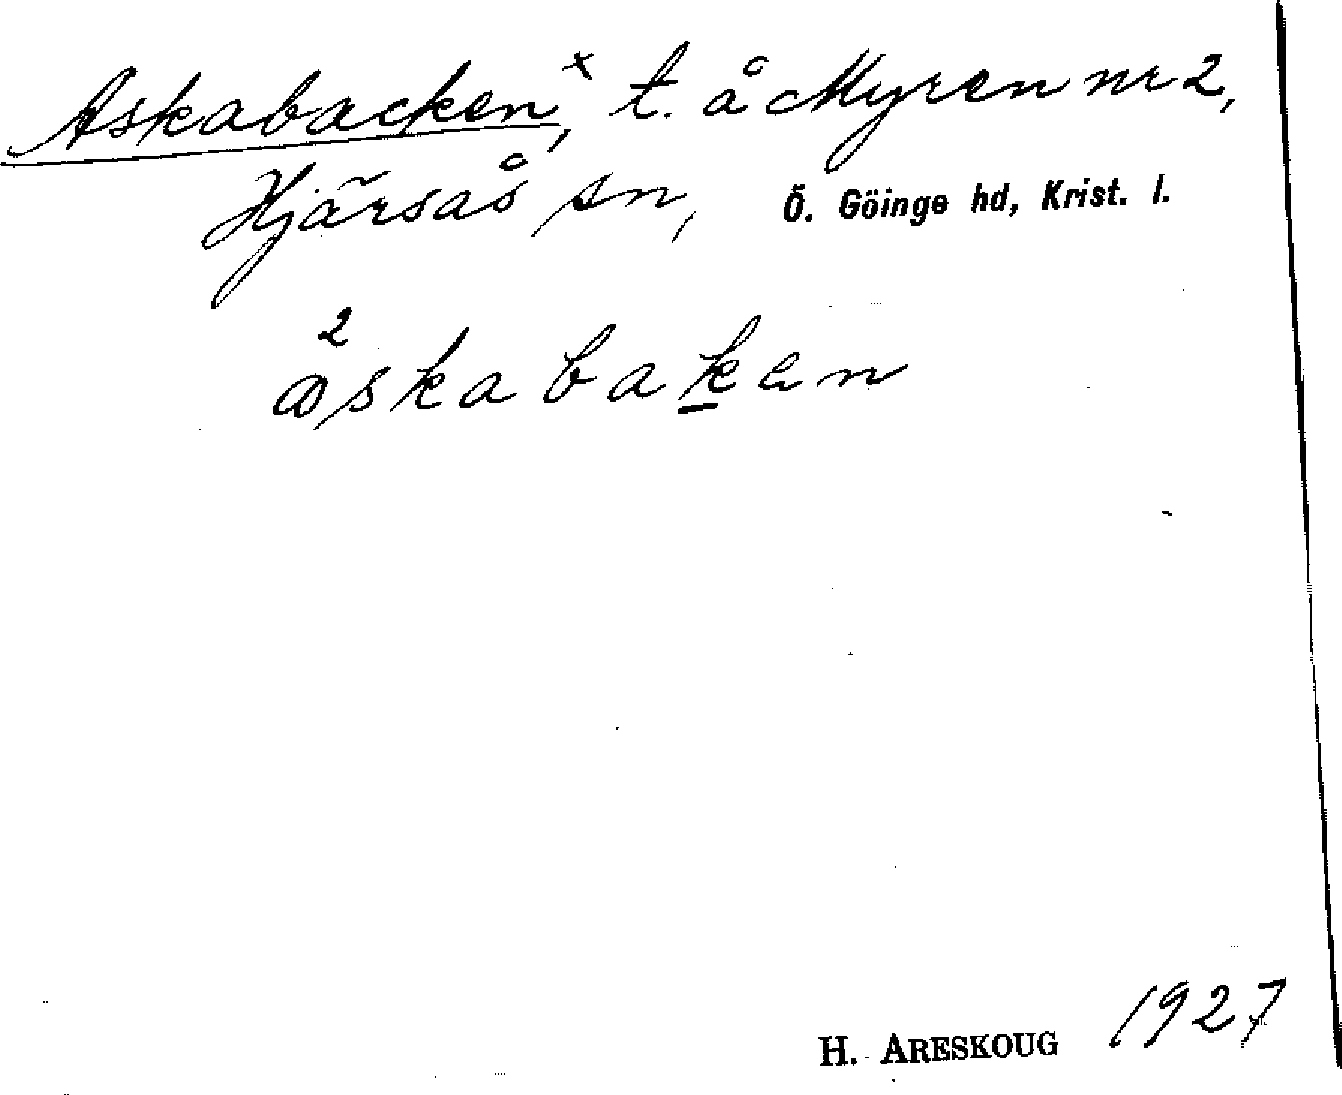 Askabacken,ˣ t. å Myren nr 2,
Hjärsås sn, Ö. Göinge hd, Krist. l.
²askabaken
H. ARESKOUG 1927